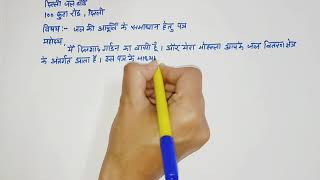 दिल्ली जल बोर्ड
100 फुटा रोड, दिल्ली
विषय:- जल की आपूर्ति के समाधान हेतु पत्र
महोदय
में दिलशाद गार्डन का वासी हूँ । और मेरा मोहल्ला आपके जल वितरण क्षेत्र
के अंतर्गत आता है । इस पत्र के माध्य